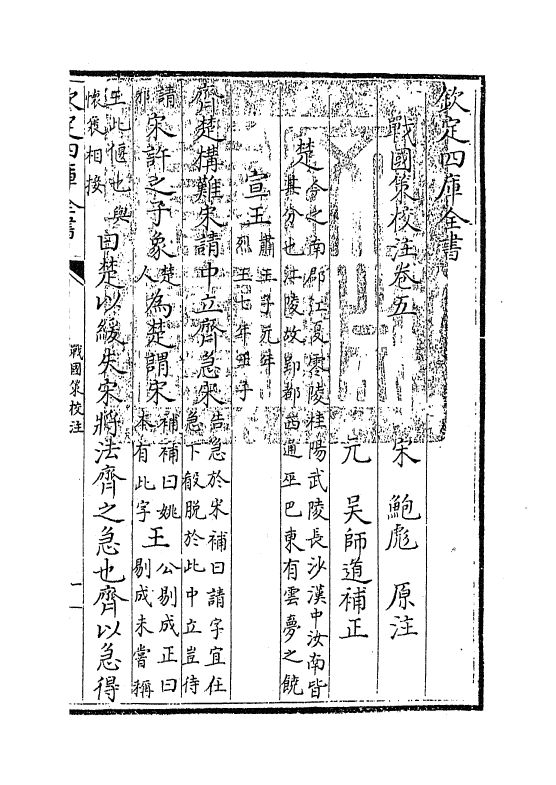 欽定四庫全書
戰國策校注卷五
宋 鮑彪 原注
元 吳師道補正
楚 今之南郡江夏零陵桂陽武陵長沙漢中汝南皆
其分也江陵故郢都西通巫巴東有雲夢之饒
宣王 肅王子元年
烈王七年壬子
齊楚構難宋請中立齊急宋 告急於宋補曰請字宜住
急下般脱於此中立豈待
請
邪 宋許之子象 楚
人 為楚謂宋 補補曰姚
本有此字 王 公剔成正曰
剔成未嘗稱
王此偃也與
懷襄相接 曰楚以緩失宋將法齊之急也齊以急得
欽定四庫全書
戰國策校注
一